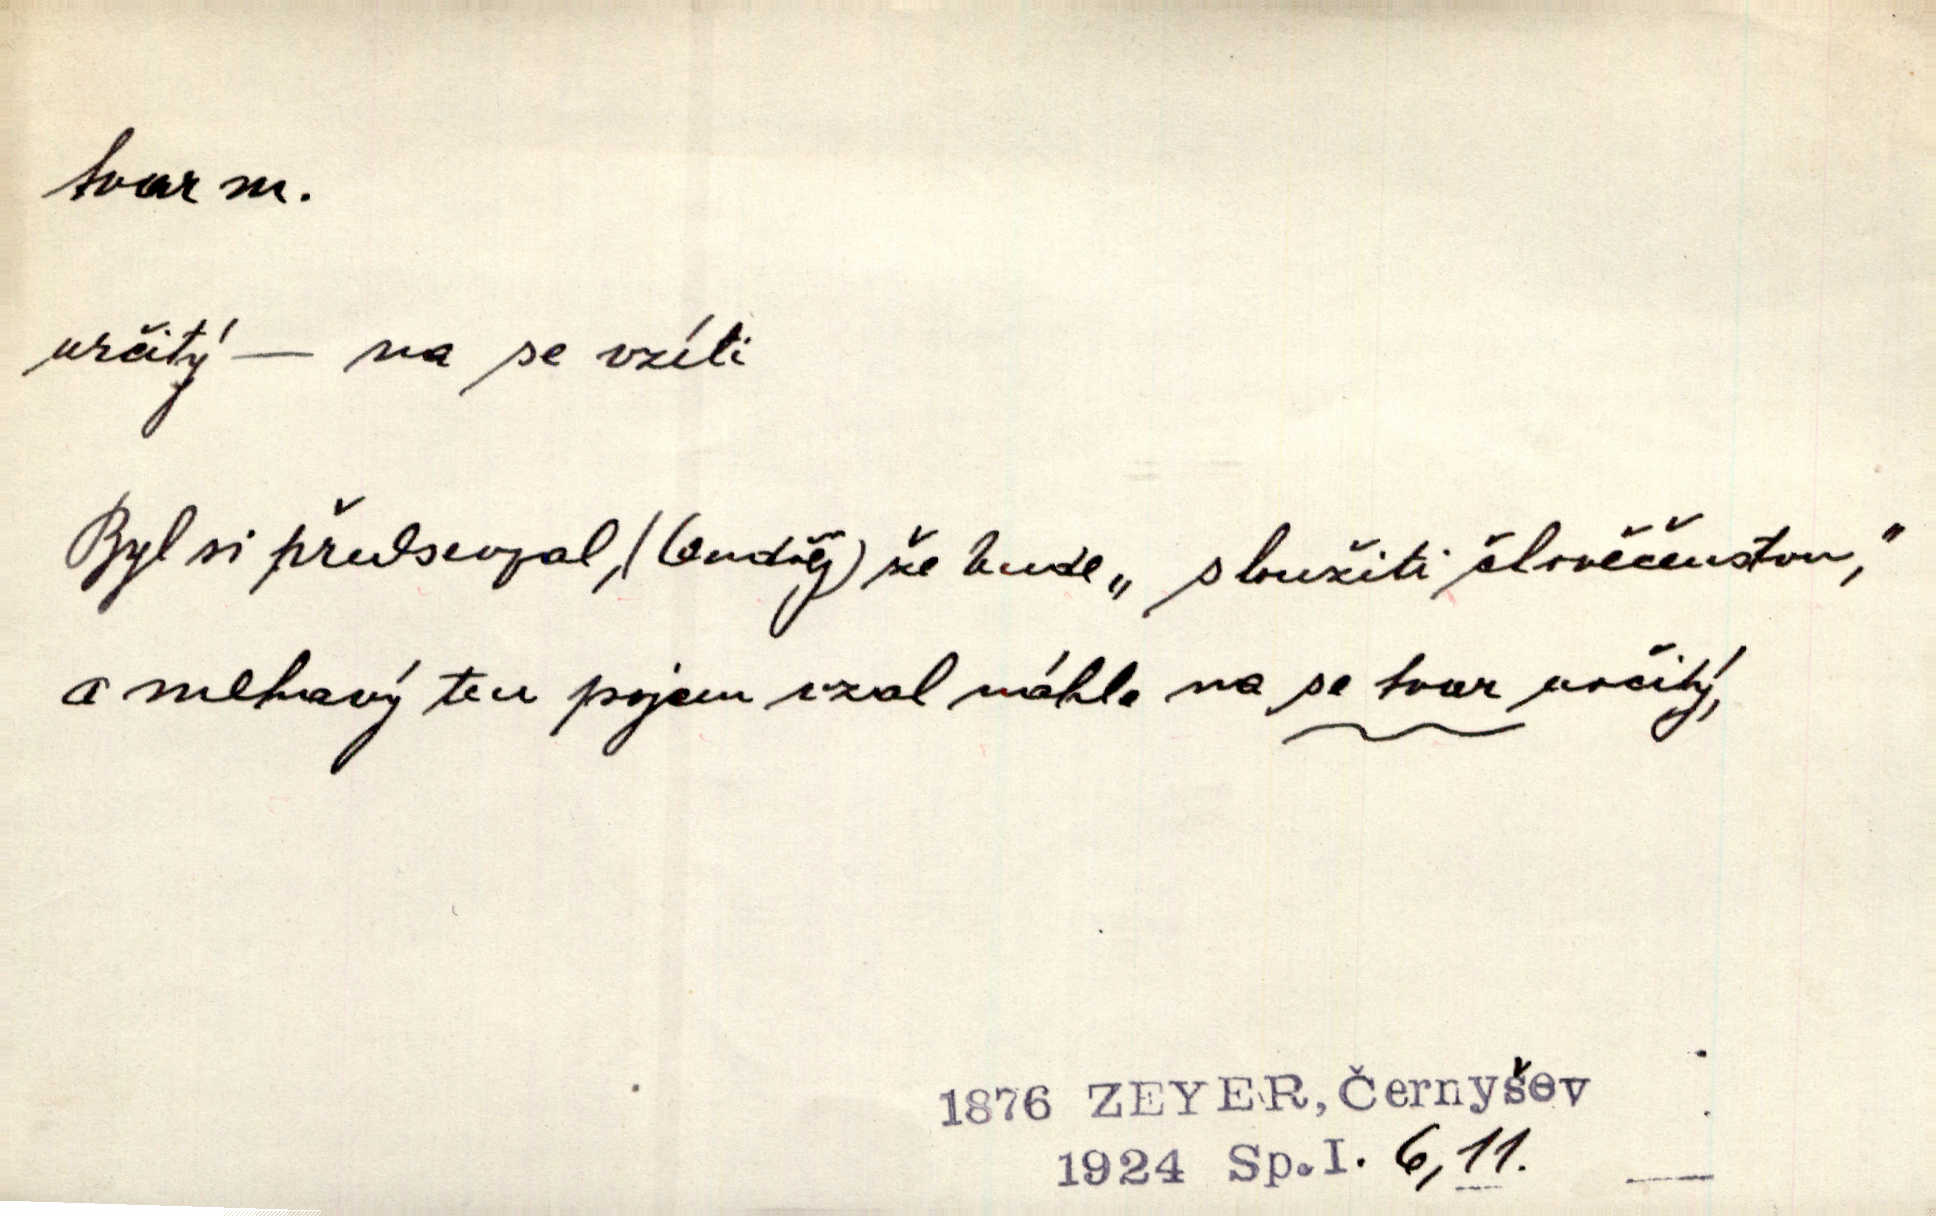 tvar m.
určitý — na se vzíti
Byl si předsevzal, (Ondřej) že bude „sloužiti člověčenstvu,"
a mlhavý ten pojem vzal náhle na se tvar určitý,
1876 ZEYER, Černyšev
1924 Sp.I. 6, 11.